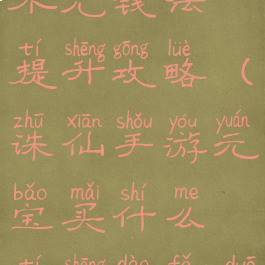 元钱法
tí shēng gōng lüè
提升攻略（
zhū xiān shǒu yóu yuán
诛仙手游元
bǎo mǎi shí me
宝买什么
tí shēng dào fǎ duō